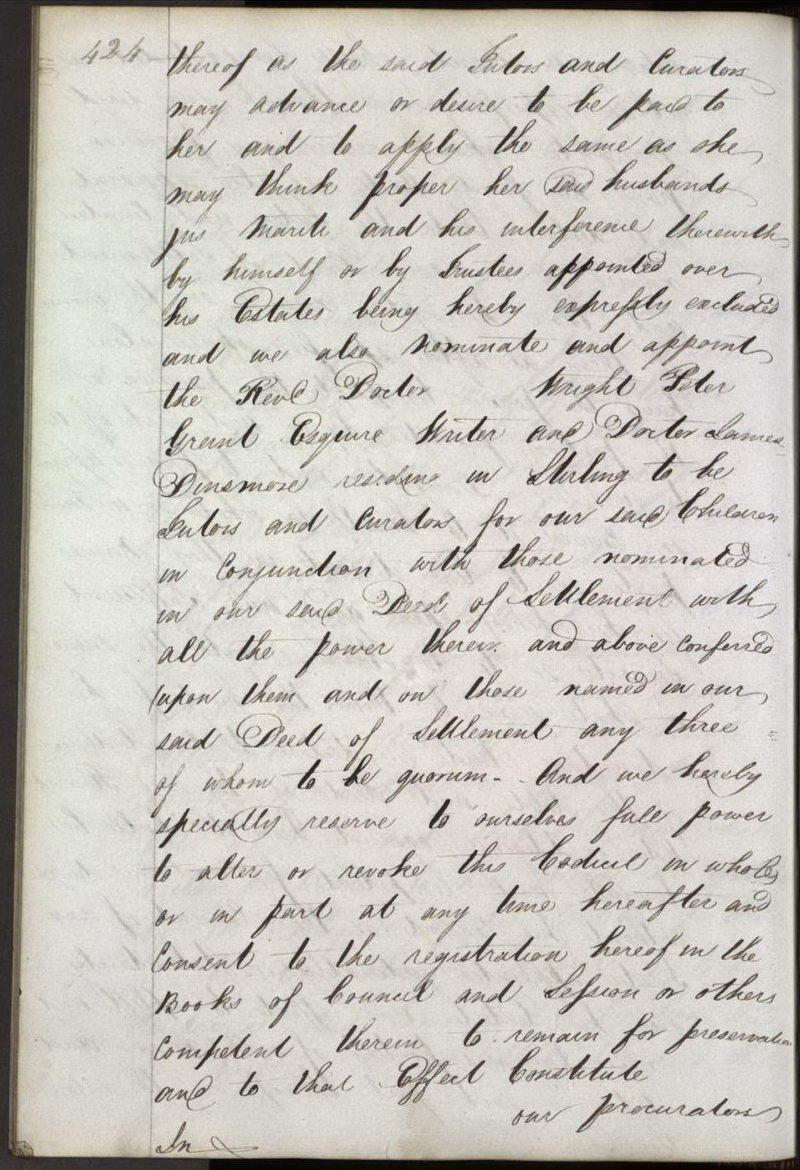 424
thereof as the said Tutors and Curators
may advance or desire to be paid to
her and to apply the same as she
may think proper her said husbands
jus mariti and his interference therewith
by himself or by Trustees appointed over
his Estates being hereby expressly excluded
and we also nominate and appoint
the Revd Doctor Wright Peter
Grant Esquire Writer and Doctor James
Dinsmore residing in Stirling to be
Tutors and Curators for our said Children
in Conjunction with those nominated
in our said Deed of Settlement with
all the power therein and above conferred
upon them and on those named in our
said Deed of Settlement any three
of whom to be quorum - And we hereby
specially reserve to ourselves full power
to alter or revoke this Codicil in whole
or in part at any time hereafter and
Consent to the registration hereof in the
Books of Council and Session or others
Competent therein to remain for preservation
and to that Effect Constitute
our procurators
In